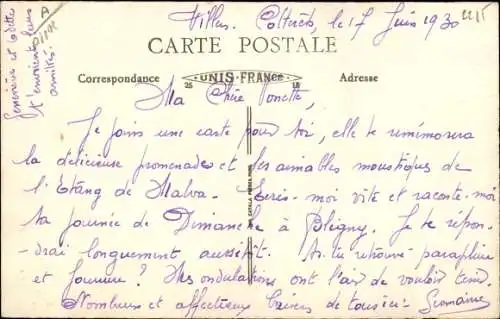 Villers. Cotterêts, le 17 Juin 1930
CARTE POSTALE
Correspondance
UNIS-FRANCE
Adresse
Ma Chère Ponette,
Je joins une carte pour toi, elle te remémorera
la délicieuse promenade et les aimables moustiques de
l'Etang de Malva. Ecris-moi vite et raconte-moi
ta journée de Dimanche à Bligny. Je te répon-
drai longuement aussitôt. As-tu retrouvé parapluie
et fourrure? Mes ondulations ont l'air de vouloir tenir.
Nombreux et affectueux baisers de tous ici. Germaine
Geneviève et Odette
t'envoient leurs
amitiés.